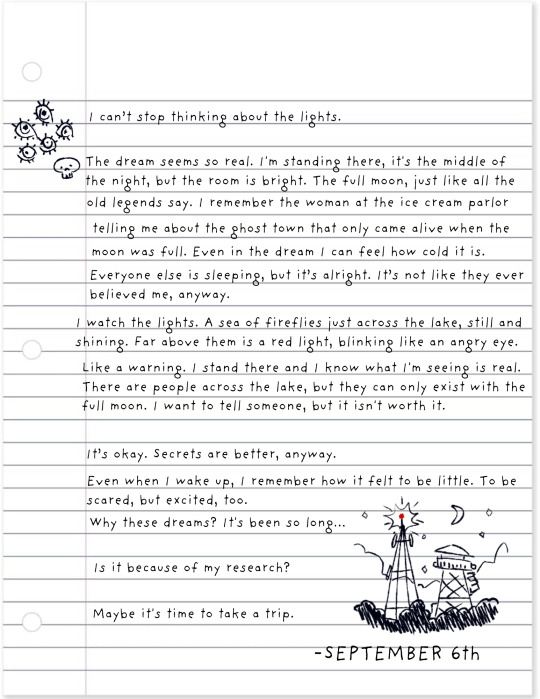 I can't stop thinking about the lights.
The dream seems so real. I'm standing there, it's the middle of
the night, but the room is bright. The full moon, just like all the
old legends say. I remember the woman at the ice cream parlor
telling me about the ghost town that only came alive when the
moon was full. Even in the dream I can feel how cold it is.
Everyone else is sleeping, but it's alright. It's not like they ever
believed me, anyway.
I watch the lights. A sea of fireflies just across the lake, still and
shining. Far above them is a red light, blinking like an angry eye.
Like a warning. I stand there and I know what I'm seeing is real.
There are people across the lake, but they can only exist with the
full moon. I want to tell someone, but it isn't worth it.
It's okay. Secrets are better, anyway.
Even when I wake up, I remember how it felt to be little. To be
scared, but excited, too.
Why these dreams? It's been so long...
Is it because of my research?
Maybe it's time to take a trip.
-SEPTEMBER 6th